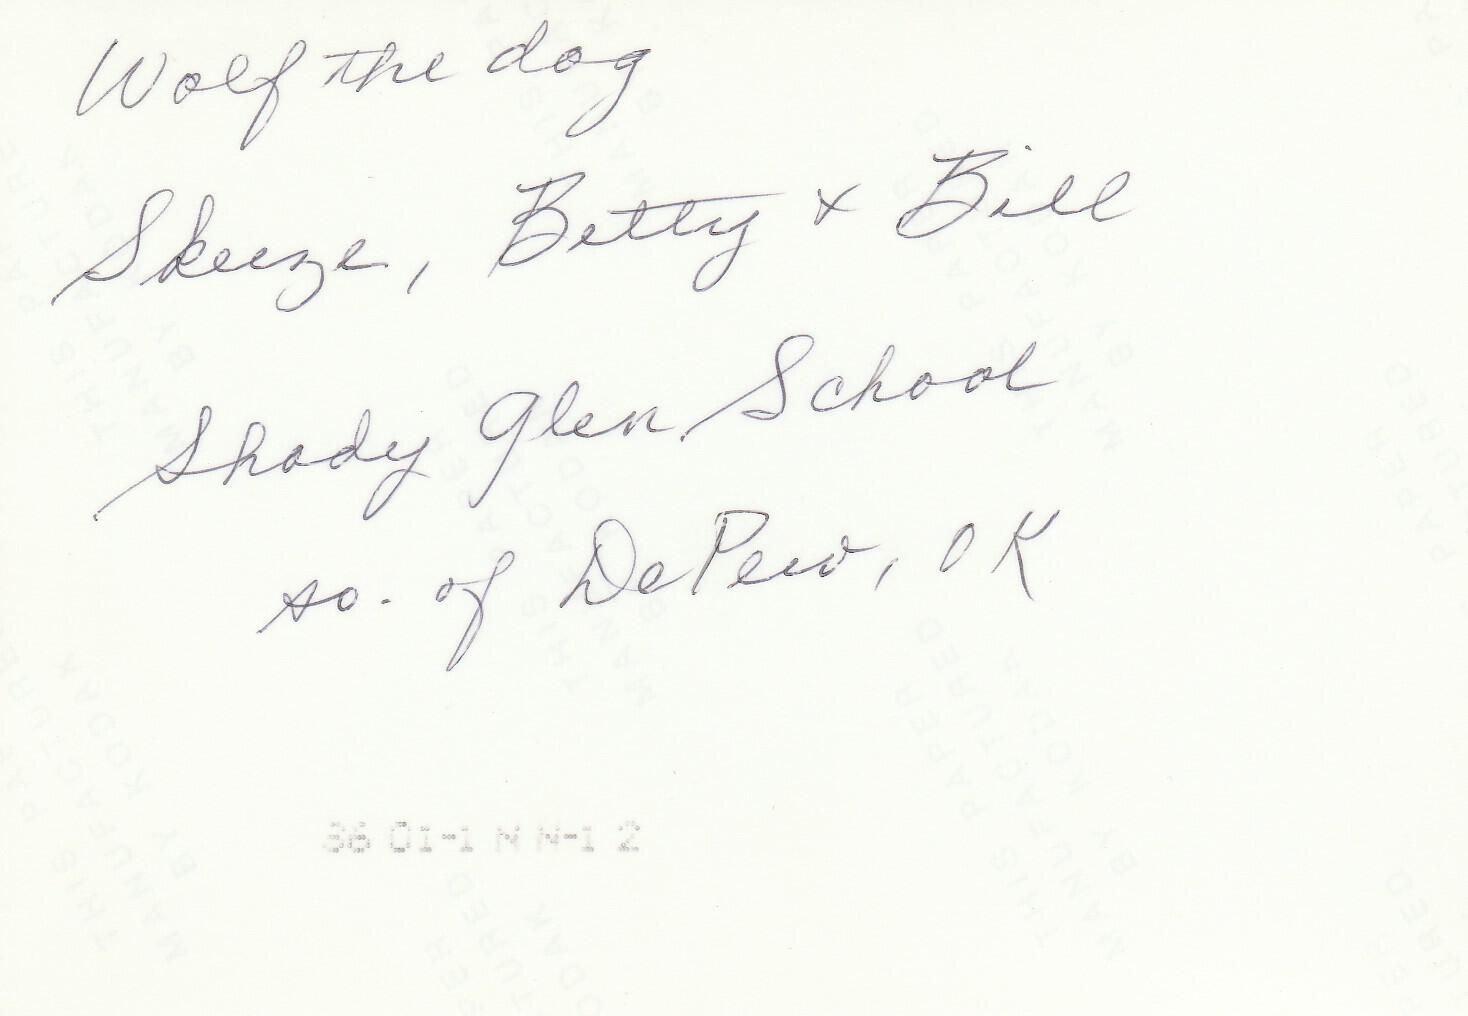 Wolf the dog
Skeeze, Betty + Bill
Shady Glen School
so. of DePew, OK
THIS PAPER
MANUFACTURED
BY KODAK